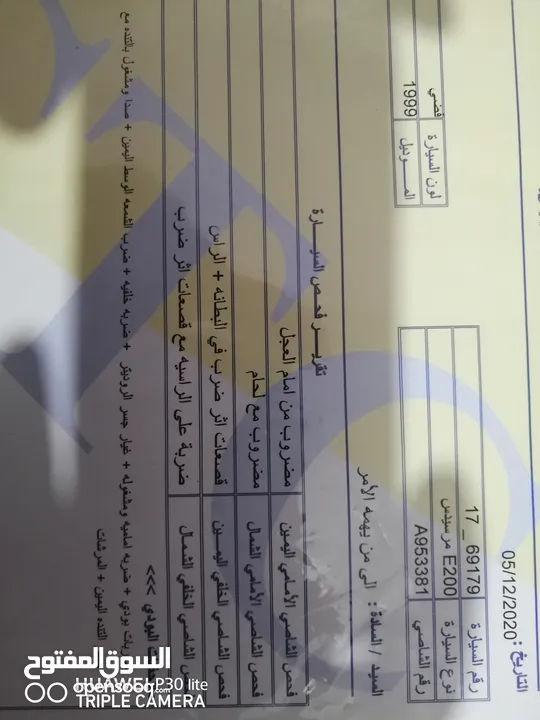 التاريخ : 05/12/2020
رقم السيارة 17 _ 69179
نوع السيارة مرسيدس E200
رقم الشاصي A953381
لون السيارة فضي
الموديل 1999
السيد / السادة : الى من يهمه الأمر
تقريــر فحص السيــارة
فحص الشاصي الأمامي اليمين مضروب من امام العجل
فحص الشاصي الأمامي الشمال مضروب مع لحام
فحص الشاصي الخلفي اليمين قصعات اثر ضرب في البطانه + الراس
الشاصي الخلفي الشمال ضربة على الراسيه مع قصعات اثر ضرب
البودي >>>
بودي + ضربه اماميه ومشغوله + غيار جسر الروديتر + ضربه خلفيه + ضرب الشمعه الوسط اليمين + صدا ومشغول بالتنده مع
التنده اليمين + الفرشات
السوق المفتوح
opensooq.com
HUAWEI P30 lite
TRIPLE CAMERA